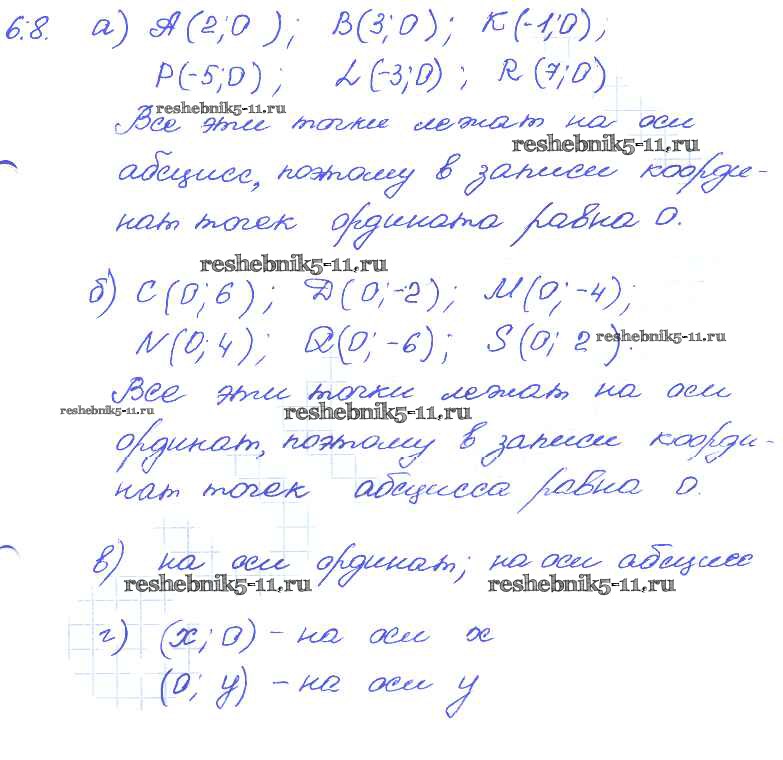 6.8. а) A(2;0); B(3;0); K(-1;0);
P(-5;0); L(-3;0); R(7;0)
reshebnik5-11.ru
Все эти точки лежат на оси
reshebnik5-11.ru
абсцисс, поэтому в записи коорди-
нат точек ордината равна 0.
reshebnik5-11.ru
б) C(0;6); D(0;-2); M(0;-4);
N(0;4); Q(0;-6); S(0; 2).
reshebnik5-11.ru
Все эти точки лежат на оси
reshebnik5-11.ru reshebnik5-11.ru
ординат, поэтому в записи коорди-
нат точек абсцисса равна 0.
в) на оси ординат; на оси абсцисс
reshebnik5-11.ru reshebnik5-11.ru
г) (x; 0) - на оси x
(0; y) - на оси y